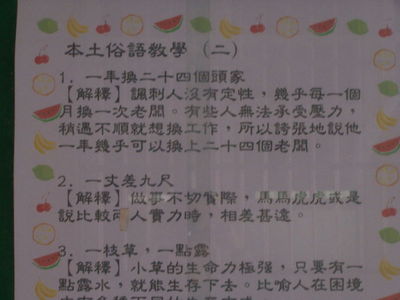 本土俗語教學（二）
1. 一年換二十四個頭家
【解釋】諷刺人沒有定性，幾乎每一個
月換一次老闆。有些人無法承受壓力，
稍遇不順就想換工作，所以誇張地說他
一年幾乎可以換上二十四個老闆。
2. 一丈差九尺
【解釋】做事不切實際，馬馬虎虎或是
說比較兩人實力時，相差甚遠。
3. 一枝草，一點露
【解釋】小草的生命力極強，只要有一
點露水，就能生存下去。比喻人在困境